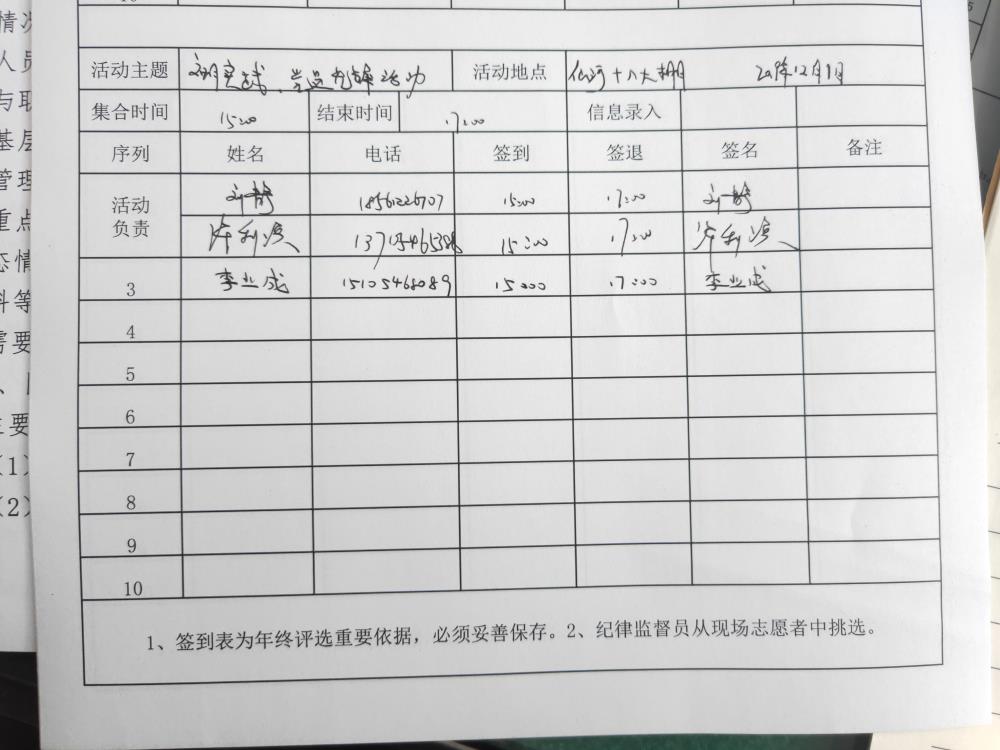 10
情况
人员
与职
基层
管理
重点
态情
料等
需要
、
主要
(1)
(2)
活动主题 活动 活动地点 十八大棚 12月1日
集合时间 15:00 结束时间 17:00 信息录入
序列 姓名 电话 签到 签退 签名 备注
活动负责 刘静 18561226707 15:00 17:00 刘静
15:00 17:00
3 李业成 15105468089 15:00 17:00 李业成
4
5
6
7
8
9
10
1、签到表为年终评选重要依据，必须妥善保存。2、纪律监督员从现场志愿者中挑选。